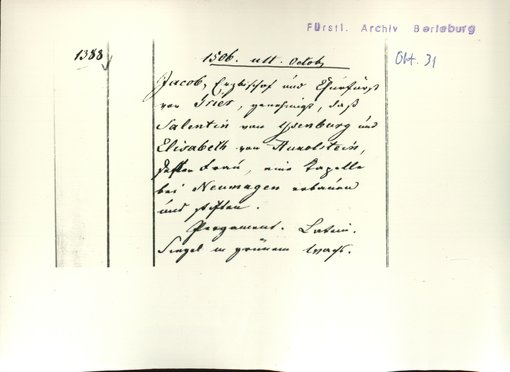 Fürstl. Archiv Berleburg
1388
1506. ult. Octob.
Okt. 31
Jacob, Erzbischof und Churfürst
von Trier, genehmigt, daß
Salentin von Ysenburg und
Elisabeth von Hunolstein,
dessen Frau, eine Capelle
bei Neumagen erbauen
und stiften.
Pergament. Latein.
Siegel in grünem Wachs.